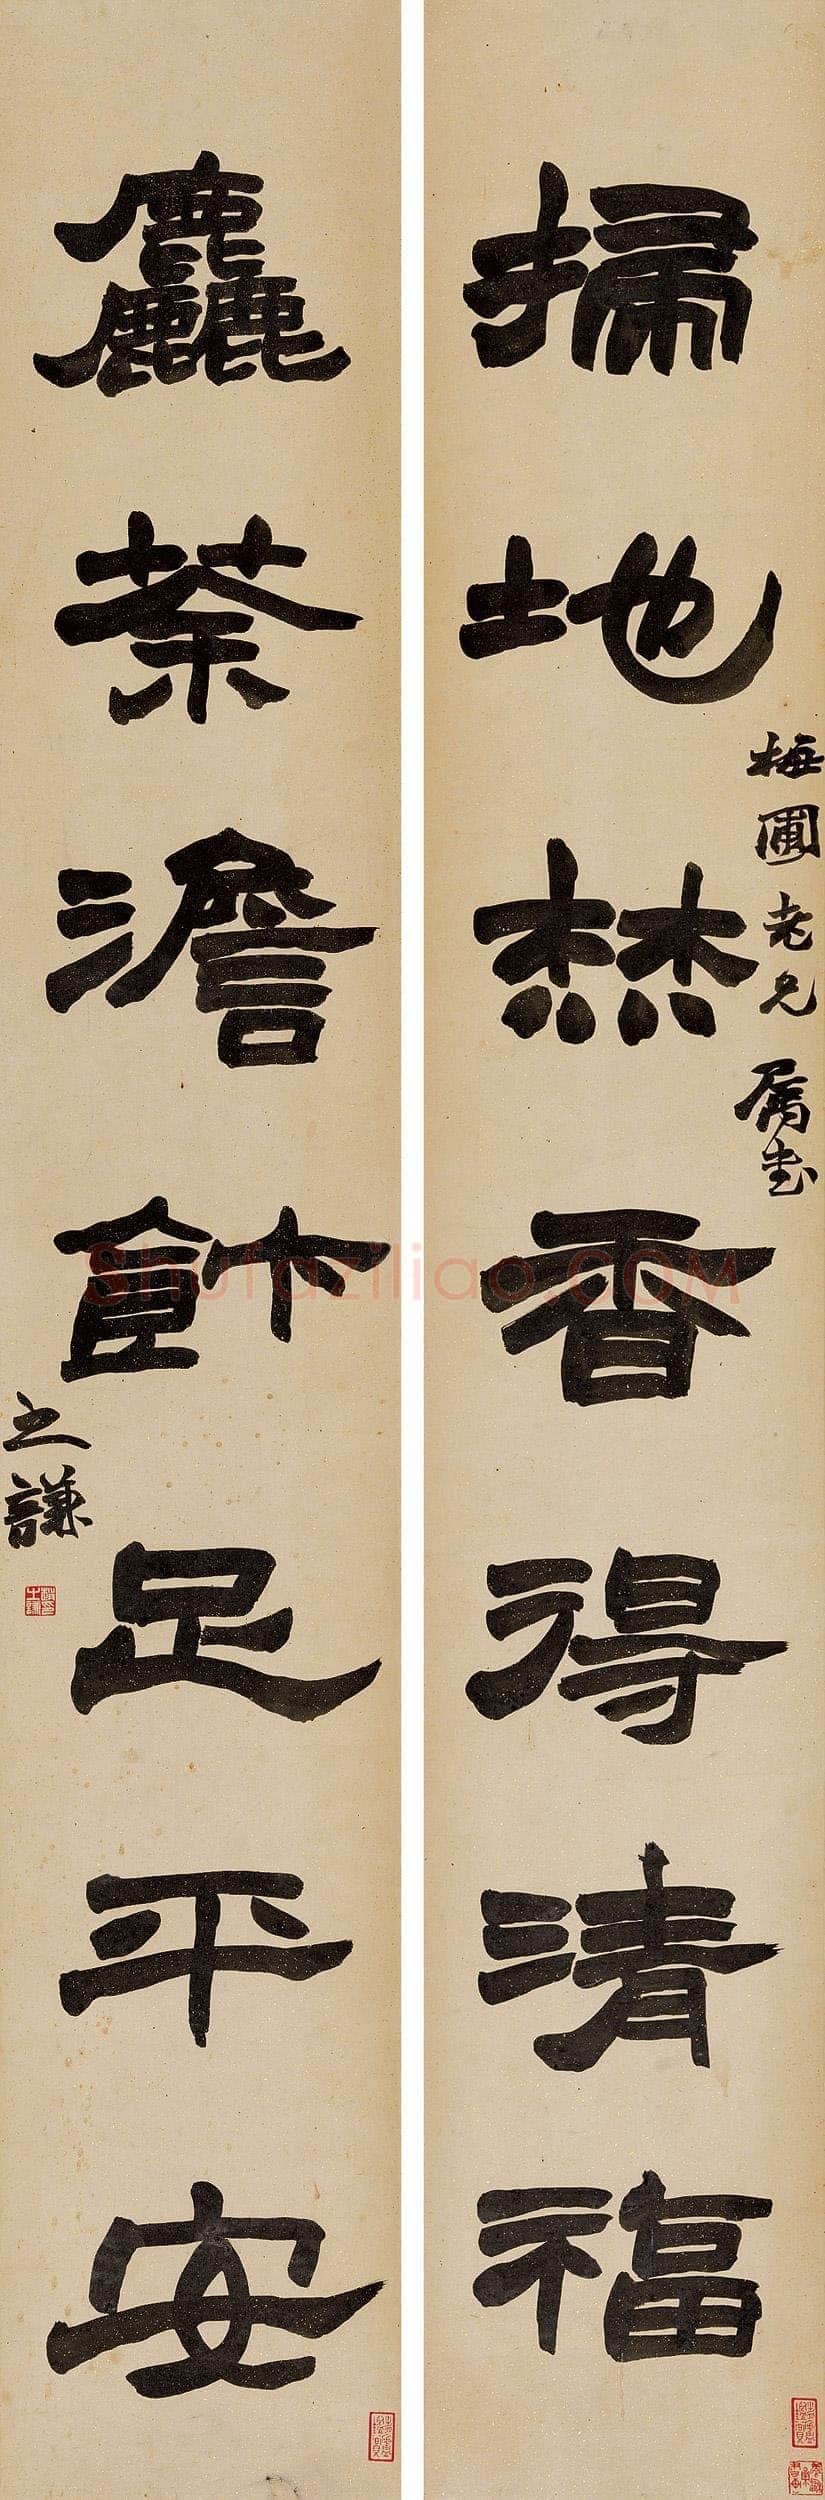 掃地焚香得清福
梅圃老兄屬書
麤茶澹飰足平安
之謙
Shufaziliao.COM